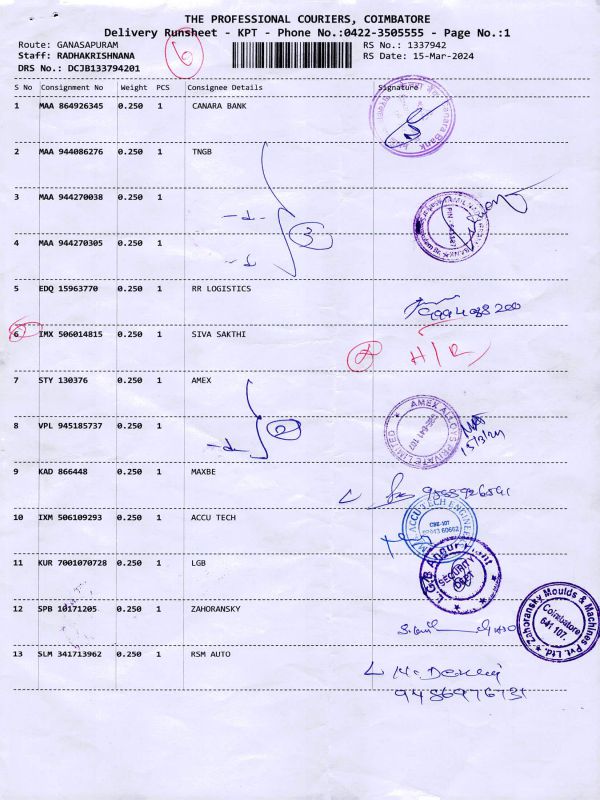 THE PROFESSIONAL COURIERS, COIMBATORE
Delivery Runsheet - KPT - Phone No.:0422-3505555 - Page No.:1
Route: GANASAPURAM RS No.: 1337942
Staff: RADHAKRISHNANA RS Date: 15-Mar-2024
DRS No.: DCJB133794201
6
S No Consignment No Weight PCS Consignee Details Signature
1 MAA 864926345 0.250 1 CANARA BANK
2 MAA 944086276 0.250 1 TNGB
3 MAA 944270038 0.250 1
3
4 MAA 944270305 0.250 1
5 EDQ 15963770 0.250 1 RR LOGISTICS
6 IMX 506014815 0.250 1 SIVA SAKTHI
H/R
7 STY 130376 0.250 1 AMEX
AMEX ALLOYS PRIVATE LIMITED
8 VPL 945185737 0.250 1
2
15/3/24
9 KAD 866448 0.250 1 MAXBE
10 IXM 506109293 0.250 1 ACCU TECH
11 KUR 7001070728 0.250 1 LGB
SECURITY DEPT
12 SPB 10171205 0.250 1 ZAHORANSKY
Zahoransky Moulds & Machines Pvt. Ltd.
Coimbatore
641 107.
13 SLM 341713962 0.250 1 RSM AUTO
9486976731